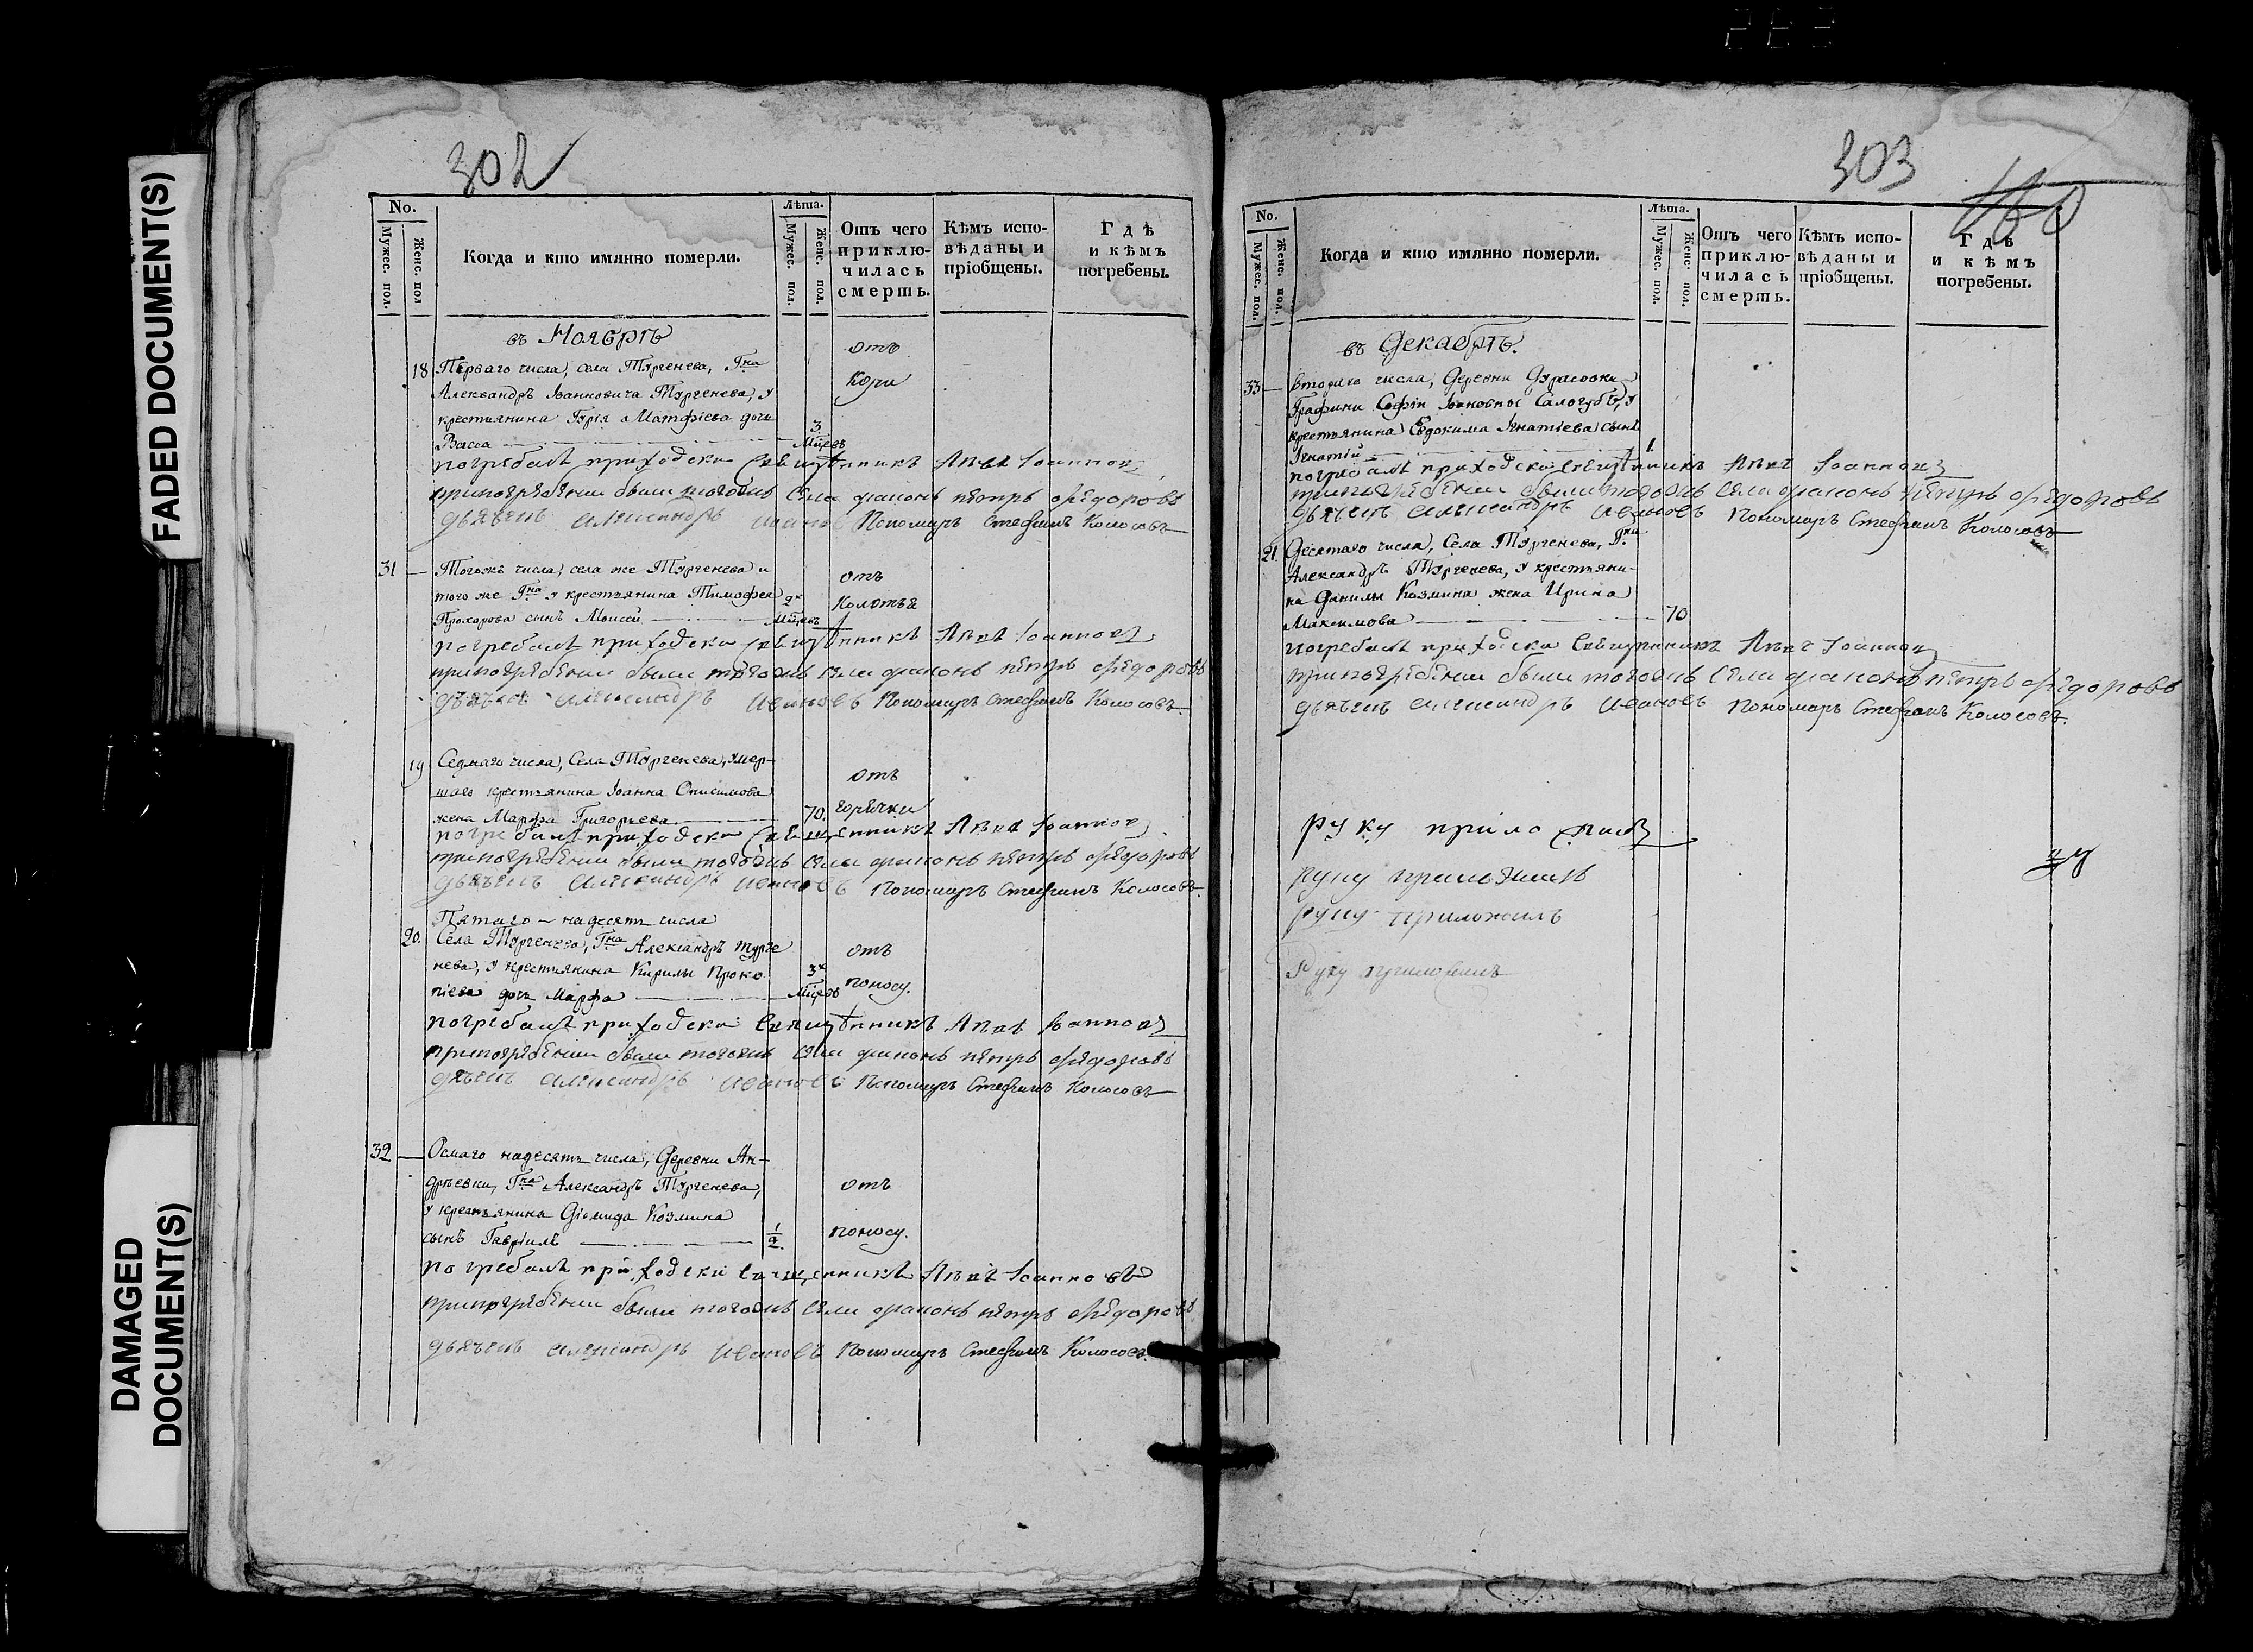 FADED DOCUMENT(S)
DAMAGED DOCUMENT(S)
302
No.
Мужес. пол.
Женс. пол
Когда и кто имянно померли.
Лѣта.
Мужес. пол.
Женс. пол.
Отъ чего приклю-чилась смерть.
Кѣмъ испо-вѣданы и пріобщены.
Гдѣ и кѣмъ погребены.
въ Ноябрѣ
18 Перваго числа, села Тургенева, Гна отъ
Александръ Іоанновича Тургенева, у Кори
крестьянина Гурія Матфіева дочь
Васса 3 Мцовъ
погребалъ приходски священникъ Іоанновъ
припогребении были тогожъ села диаконъ петръ Федоровъ
дьячекъ александръ ивановъ Пономарь Стефанъ Колосовъ
31 Тогожъ числа, села же Тургенева и отъ
того же Гна у крестьянина Тимофея 2х Колотья
Прохорова сынъ Моисей Мцовъ
погребалъ приходски священникъ Іоанновъ
припогребении были тогожъ села диаконъ петръ Федоровъ
дьячекъ александръ ивановъ Пономарь Стефанъ Колосовъ.
19 Седмаго числа, Села Тургенева, умер- отъ
шаго крестьянина Іоанна Онисимова
жена Марфа Григорьева 70. горячки
погребалъ приходски священникъ Іоанновъ
припогребении были тогожъ села диаконъ петръ Федоровъ
дьячекъ александръ ивановъ Пономарь Стефанъ Колосовъ.
Пятаго-надесять числа
20. Села Тургенева, Гна Александръ Турге отъ
нева, у крестьянина Кирилы Проко 3х
піева дочь Марфа Мцовъ поносу.
погребалъ приходски священникъ Іоанновъ
припогребении были тогожъ села диаконъ петръ Федоровъ
дьячекъ александръ ивановъ Пономарь Стефанъ Колосовъ
32 Осмаго надесять числа, Деревни Ан-
дреевки, Гна Александръ Тургенева, отъ
у крестьянина Діомида Козмина
сынъ Гавріилъ 1/2. поносу.
погребалъ приходски священникъ Іоанновъ
припогребении были тогожъ села диаконъ петръ Федоровъ
дьячекъ александръ ивановъ Пономарь Стефанъ Колосовъ.
303
160
No.
Мужес. пол.
Женс. пол.
Когда и кто имянно померли.
Лѣта.
Мужес. пол.
Женс. пол.
Отъ чего приклю-чилась смерть.
Кѣмъ испо-вѣданы и пріобщены.
Гдѣ и кѣмъ погребены.
въ Декабрѣ.
33 Втораго числа, Деревни Дурасовки
Графини Софіи Іоановны Салогубъ, у
крестьянина Евдокима Игнатіева сынъ
Игнатій 1.
погребалъ приходски священникъ Іоанновъ
припогребении были тогожъ села диаконъ петръ Федоровъ
дьячекъ александръ ивановъ Пономарь Стефанъ Колосовъ
21 Десятаго числа, Села Тургенева, Гна
Александръ Тургенева, у крестьяни-
на Данилы Козмина жена Ирина
Максимова 70
погребалъ приходски священникъ Іоанновъ
припогребении были тогожъ села диаконъ петръ Федоровъ
дьячекъ александръ ивановъ Пономарь Стефанъ Колосовъ.
руку приложилъ
руку приложилъ
руку приложилъ
Руку приложилъ